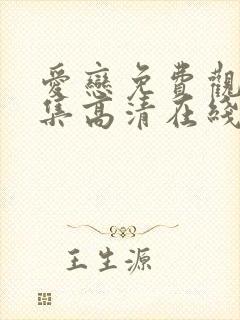 愛戀免費觀
集高清在綫
王生源